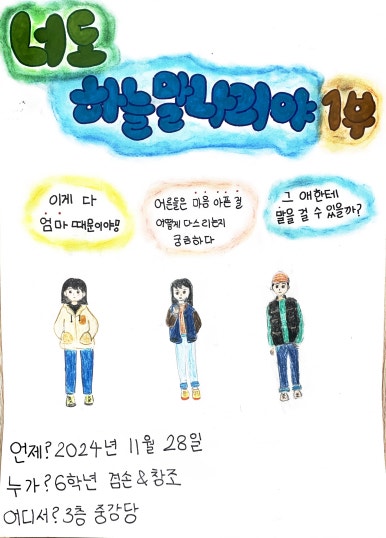 너도
하늘말나리야 1부
이게 다
엄마 때문이야!!
어른들은 마음 아픈 걸
어떻게 다스리는지
궁금하다
그 애한테
말을 걸 수 있을까?
언제? 2024년 11월 28일
누가? 6학년 겸손&창조
어디서? 3층 중강당